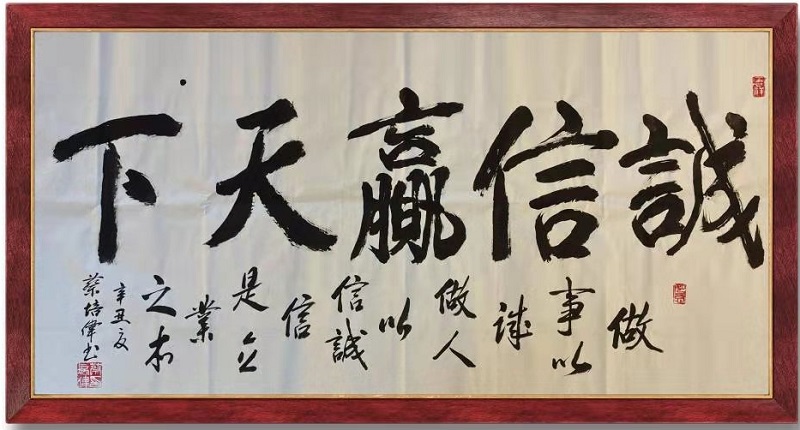 誠信贏天下
做
事以
诚
做人
以
信誠
信
是立
業
之本
辛丑夏
蔡培偉书